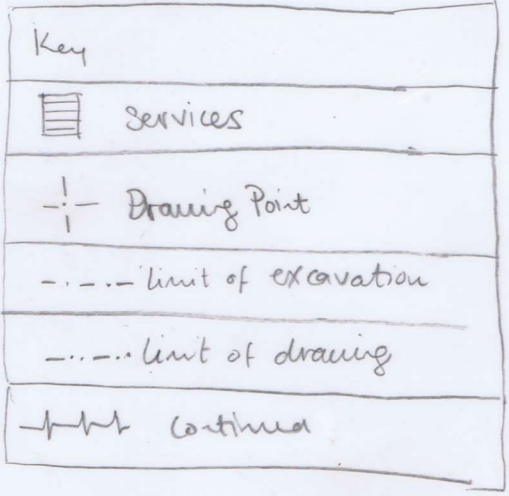 Key
Services
Drawing Point
limit of excavation
limit of drawing
Continued